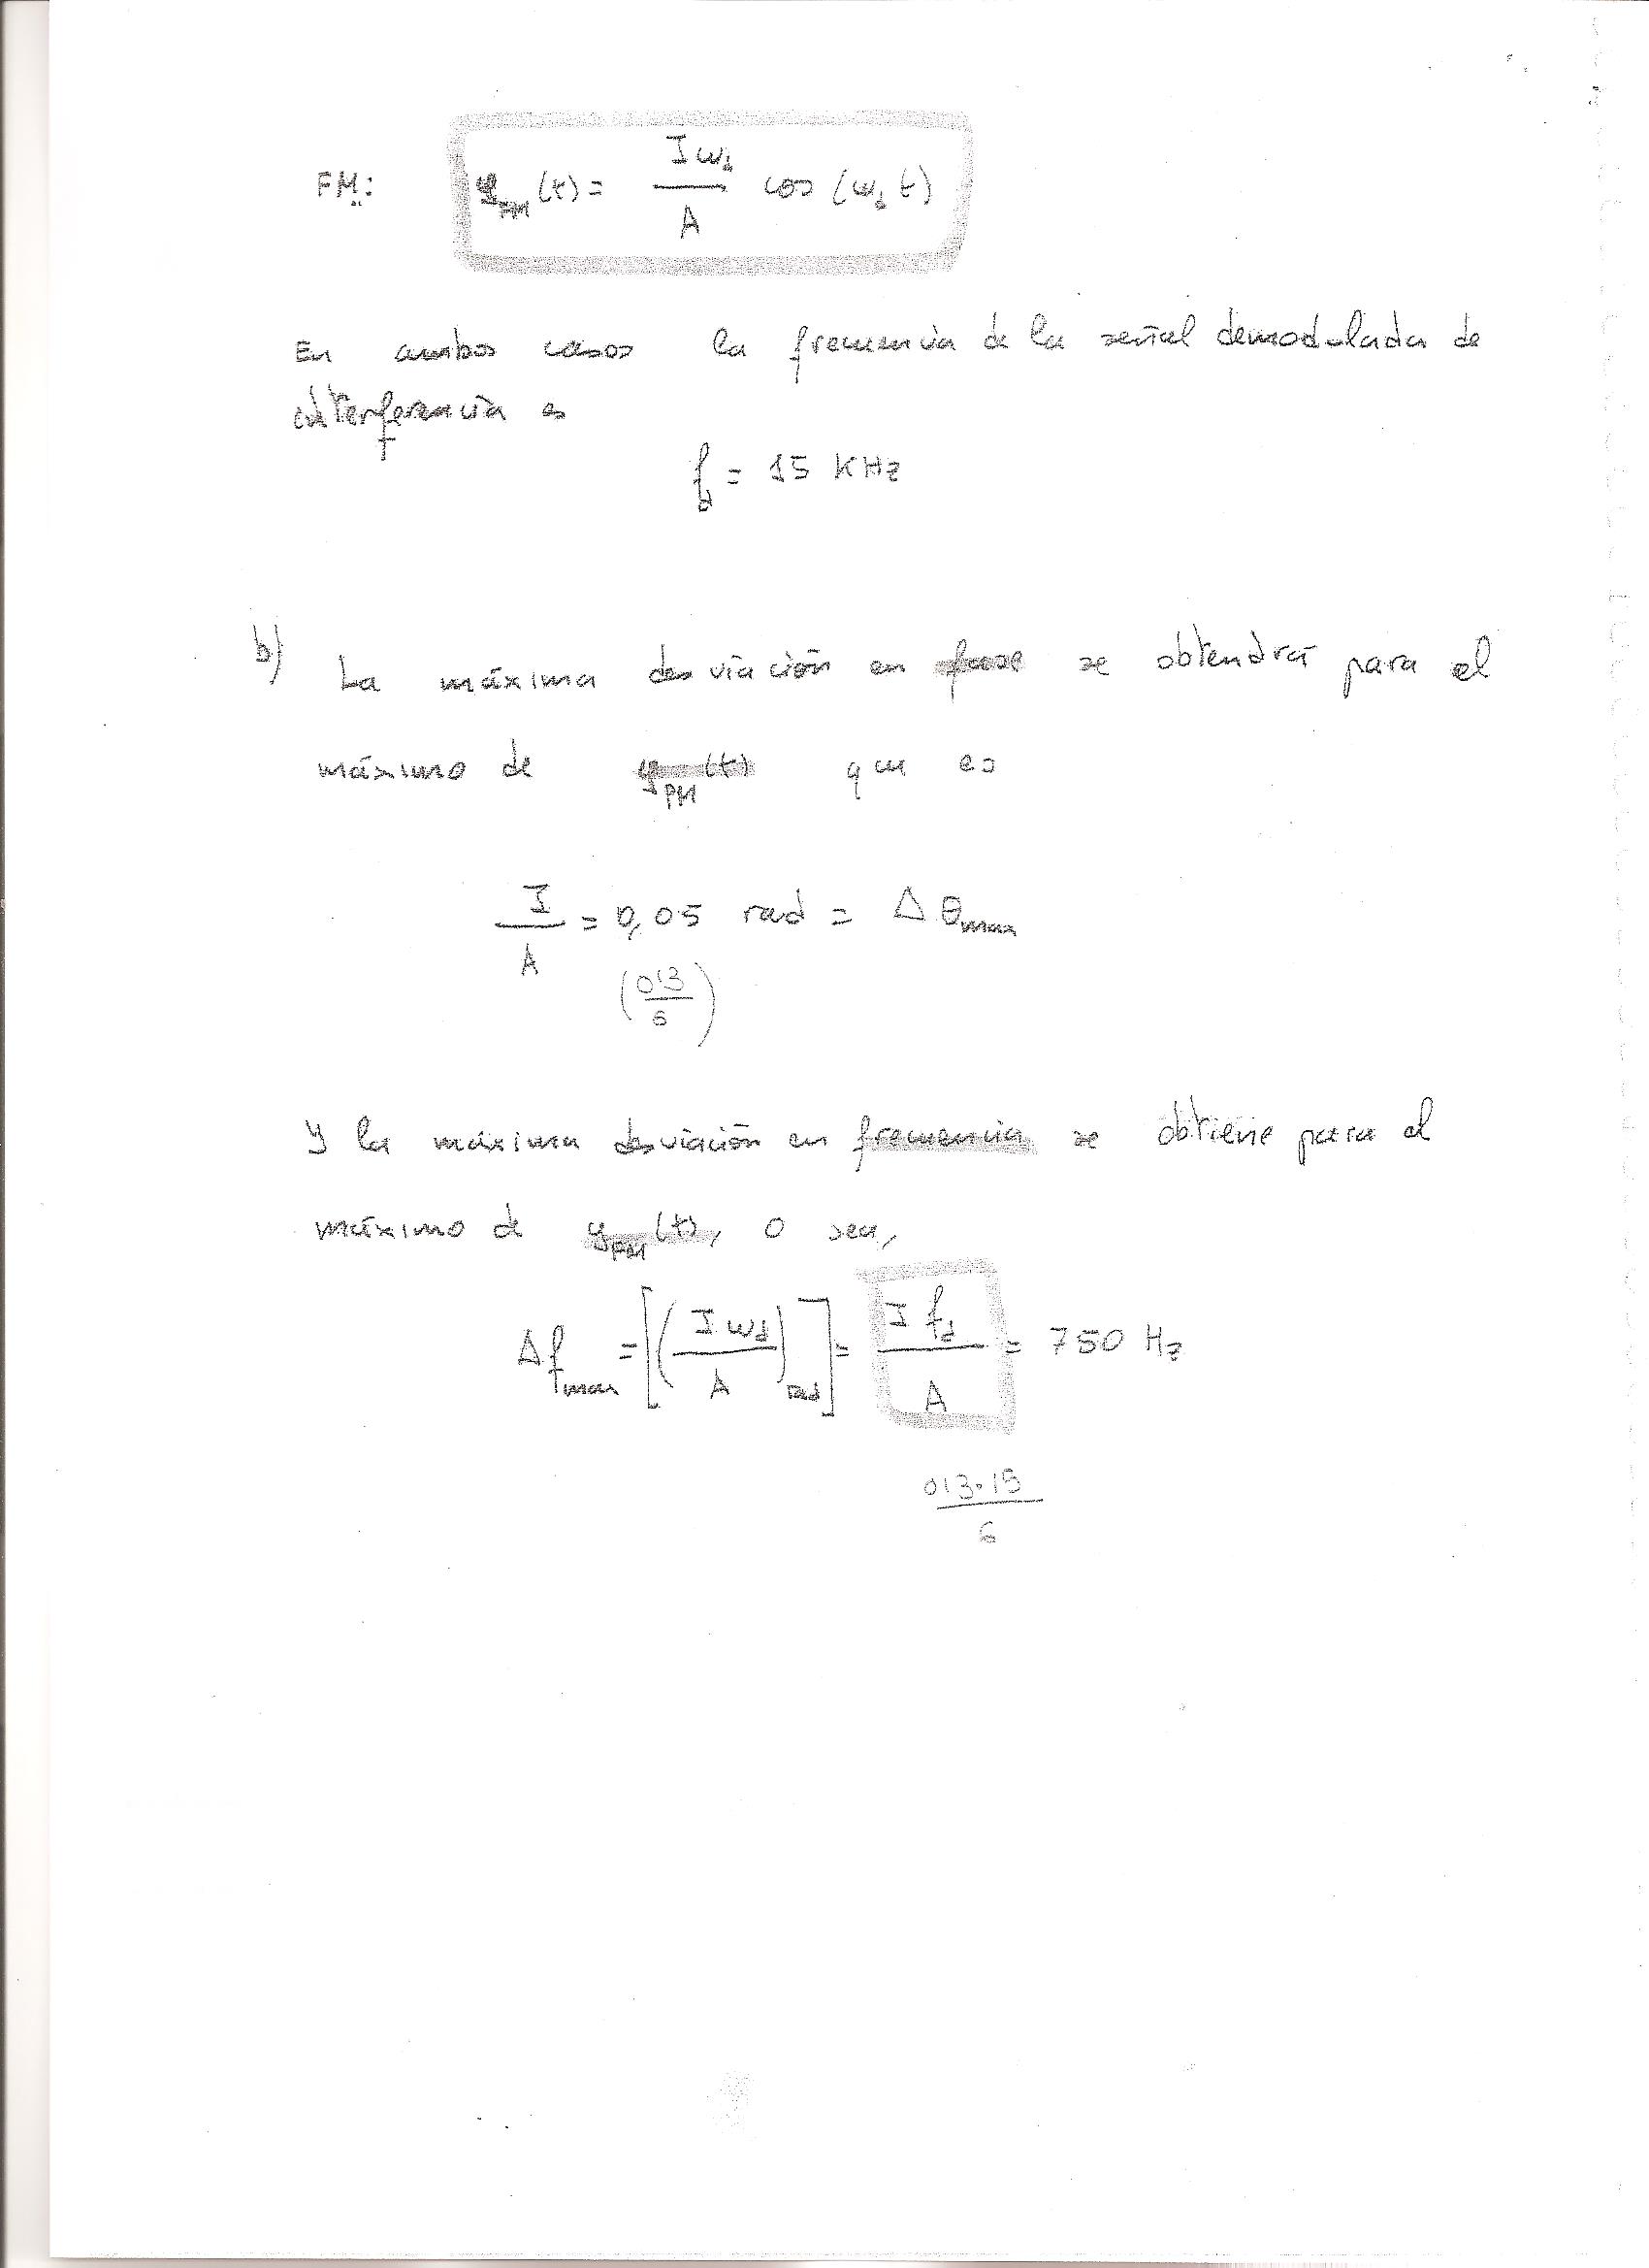 FM: y_FM (t) = I ω_d / A cos (ω_d t)
En ambos casos la frecuencia de la señal demodulada de
interferencia es
f_d = 15 KHz
b) La máxima desviación en fase se obtendrá para el
máximo de y_PM (t) que es
I / A = 0,05 rad = Δ θ_max
(0'3 / 6)
Y la máxima desviación en frecuencia se obtiene para el
máximo de y_FM (t), o sea,
Δf_max = [(I ω_d / A)_rad] = I f_d / A = 750 Hz
0'3·15 / 6